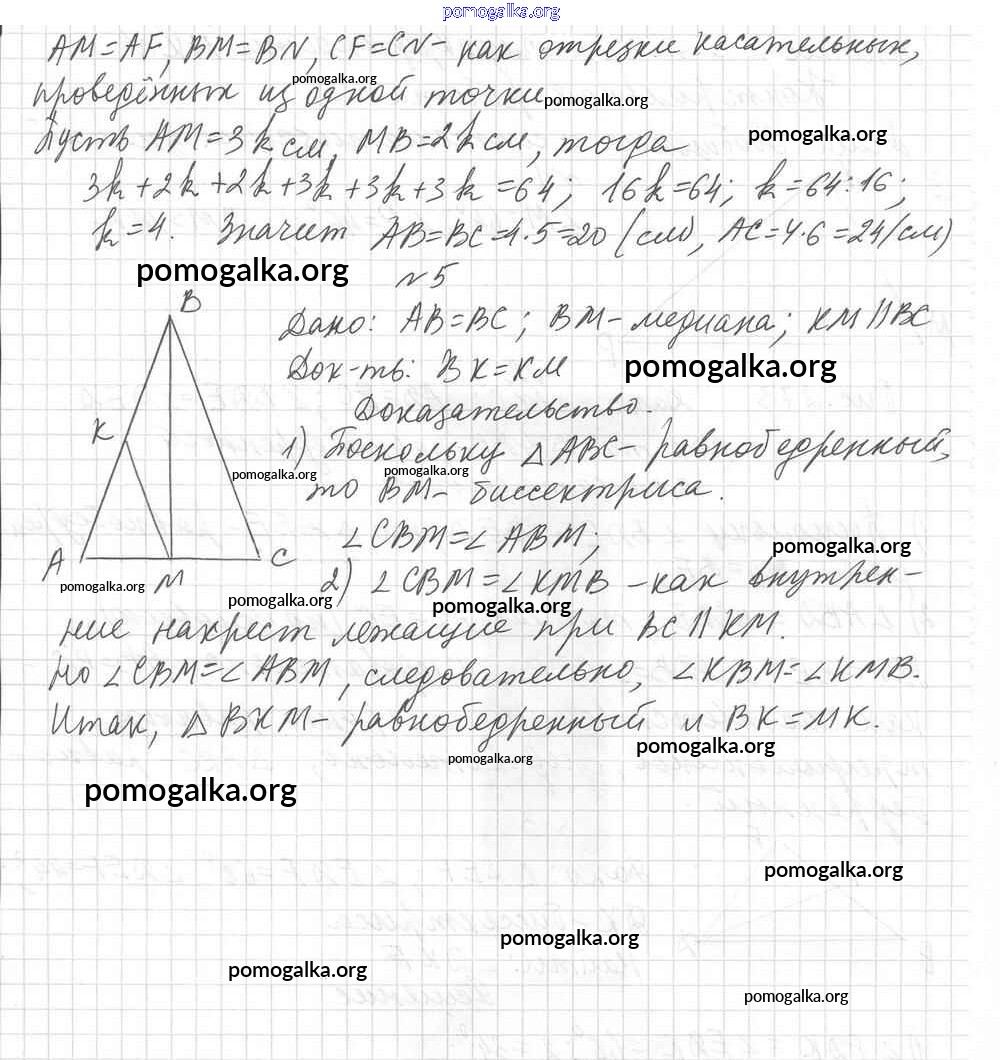 pomogalka.org
AM=AF, BM=BN, CF=CN - как отрезки касательных,
pomogalka.org
проведённых из одной точки
pomogalka.org
Пусть AM=3k см, MB=2k см, тогда
pomogalka.org
3k+2k+2k+3k+3k+3k=64; 16k=64; k=64:16;
k=4. Значит AB=BC=4·5=20 (см), AC=4·6=24(см)
pomogalka.org
№5
B
Дано: AB=BC; BM-медиана; KM||BC
Док-ть: BK=KM
pomogalka.org
Доказательство.
K
1) Поскольку △ABC- равнобедренный,
pomogalka.org
pomogalka.org
то BM- биссектриса.
∠CBM=∠ABM;
pomogalka.org
A
M
C
pomogalka.org
pomogalka.org
2) ∠CBM=∠KMB -как внутрен-
pomogalka.org
ние накрест лежащие при BC||KM.
Но ∠CBM=∠ABM, следовательно, ∠KBM=∠KMB.
Итак, △BKM- равнобедренный и BK=MK.
pomogalka.org
pomogalka.org
pomogalka.org
pomogalka.org
pomogalka.org
pomogalka.org
pomogalka.org